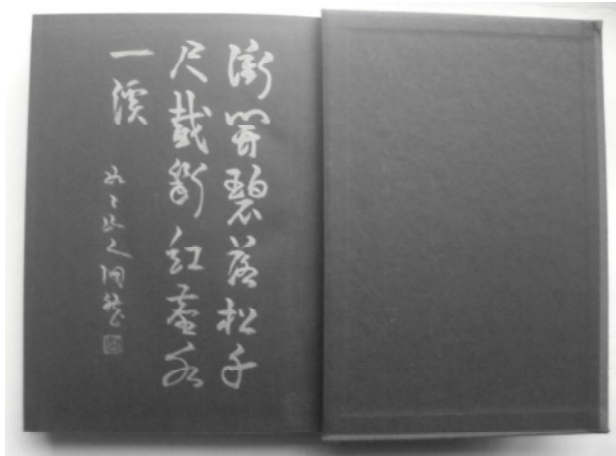 衝開碧落松千
尺截斷紅塵水
一溪